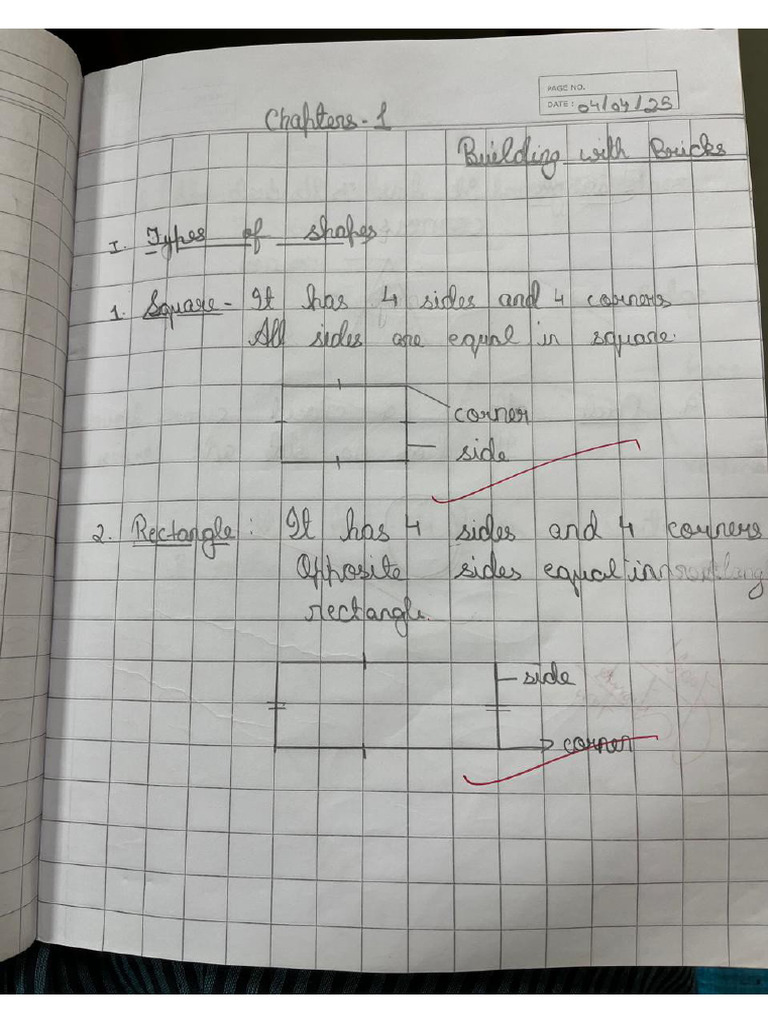 PAGE NO.
DATE: 04/04/25
Chapters-1
Building with Bricks
I. Types of shapes
1. Square - It has 4 sides and 4 corners
All sides are equal in square.
corner
side
2. Rectangle: It has 4 sides and 4 corners
Opposite sides equal in
rectangle.
side
corner